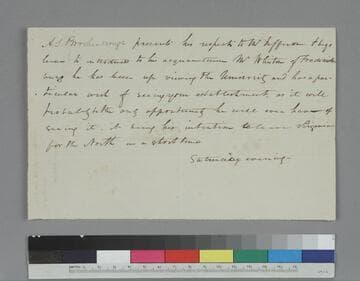 A S Brockenbrough presents his respects to Mr Jefferson & begs
leave to introduce to his acquaintance Mr Whiton of Fredericks
burg he has been up viewing the University and has a par-
ticular wish of seeing your establishment, as it will
probably be the only opportunity he will ever have of
seeing it. it being his intention to leave Virginia
for the North in a short time
Saturday evening